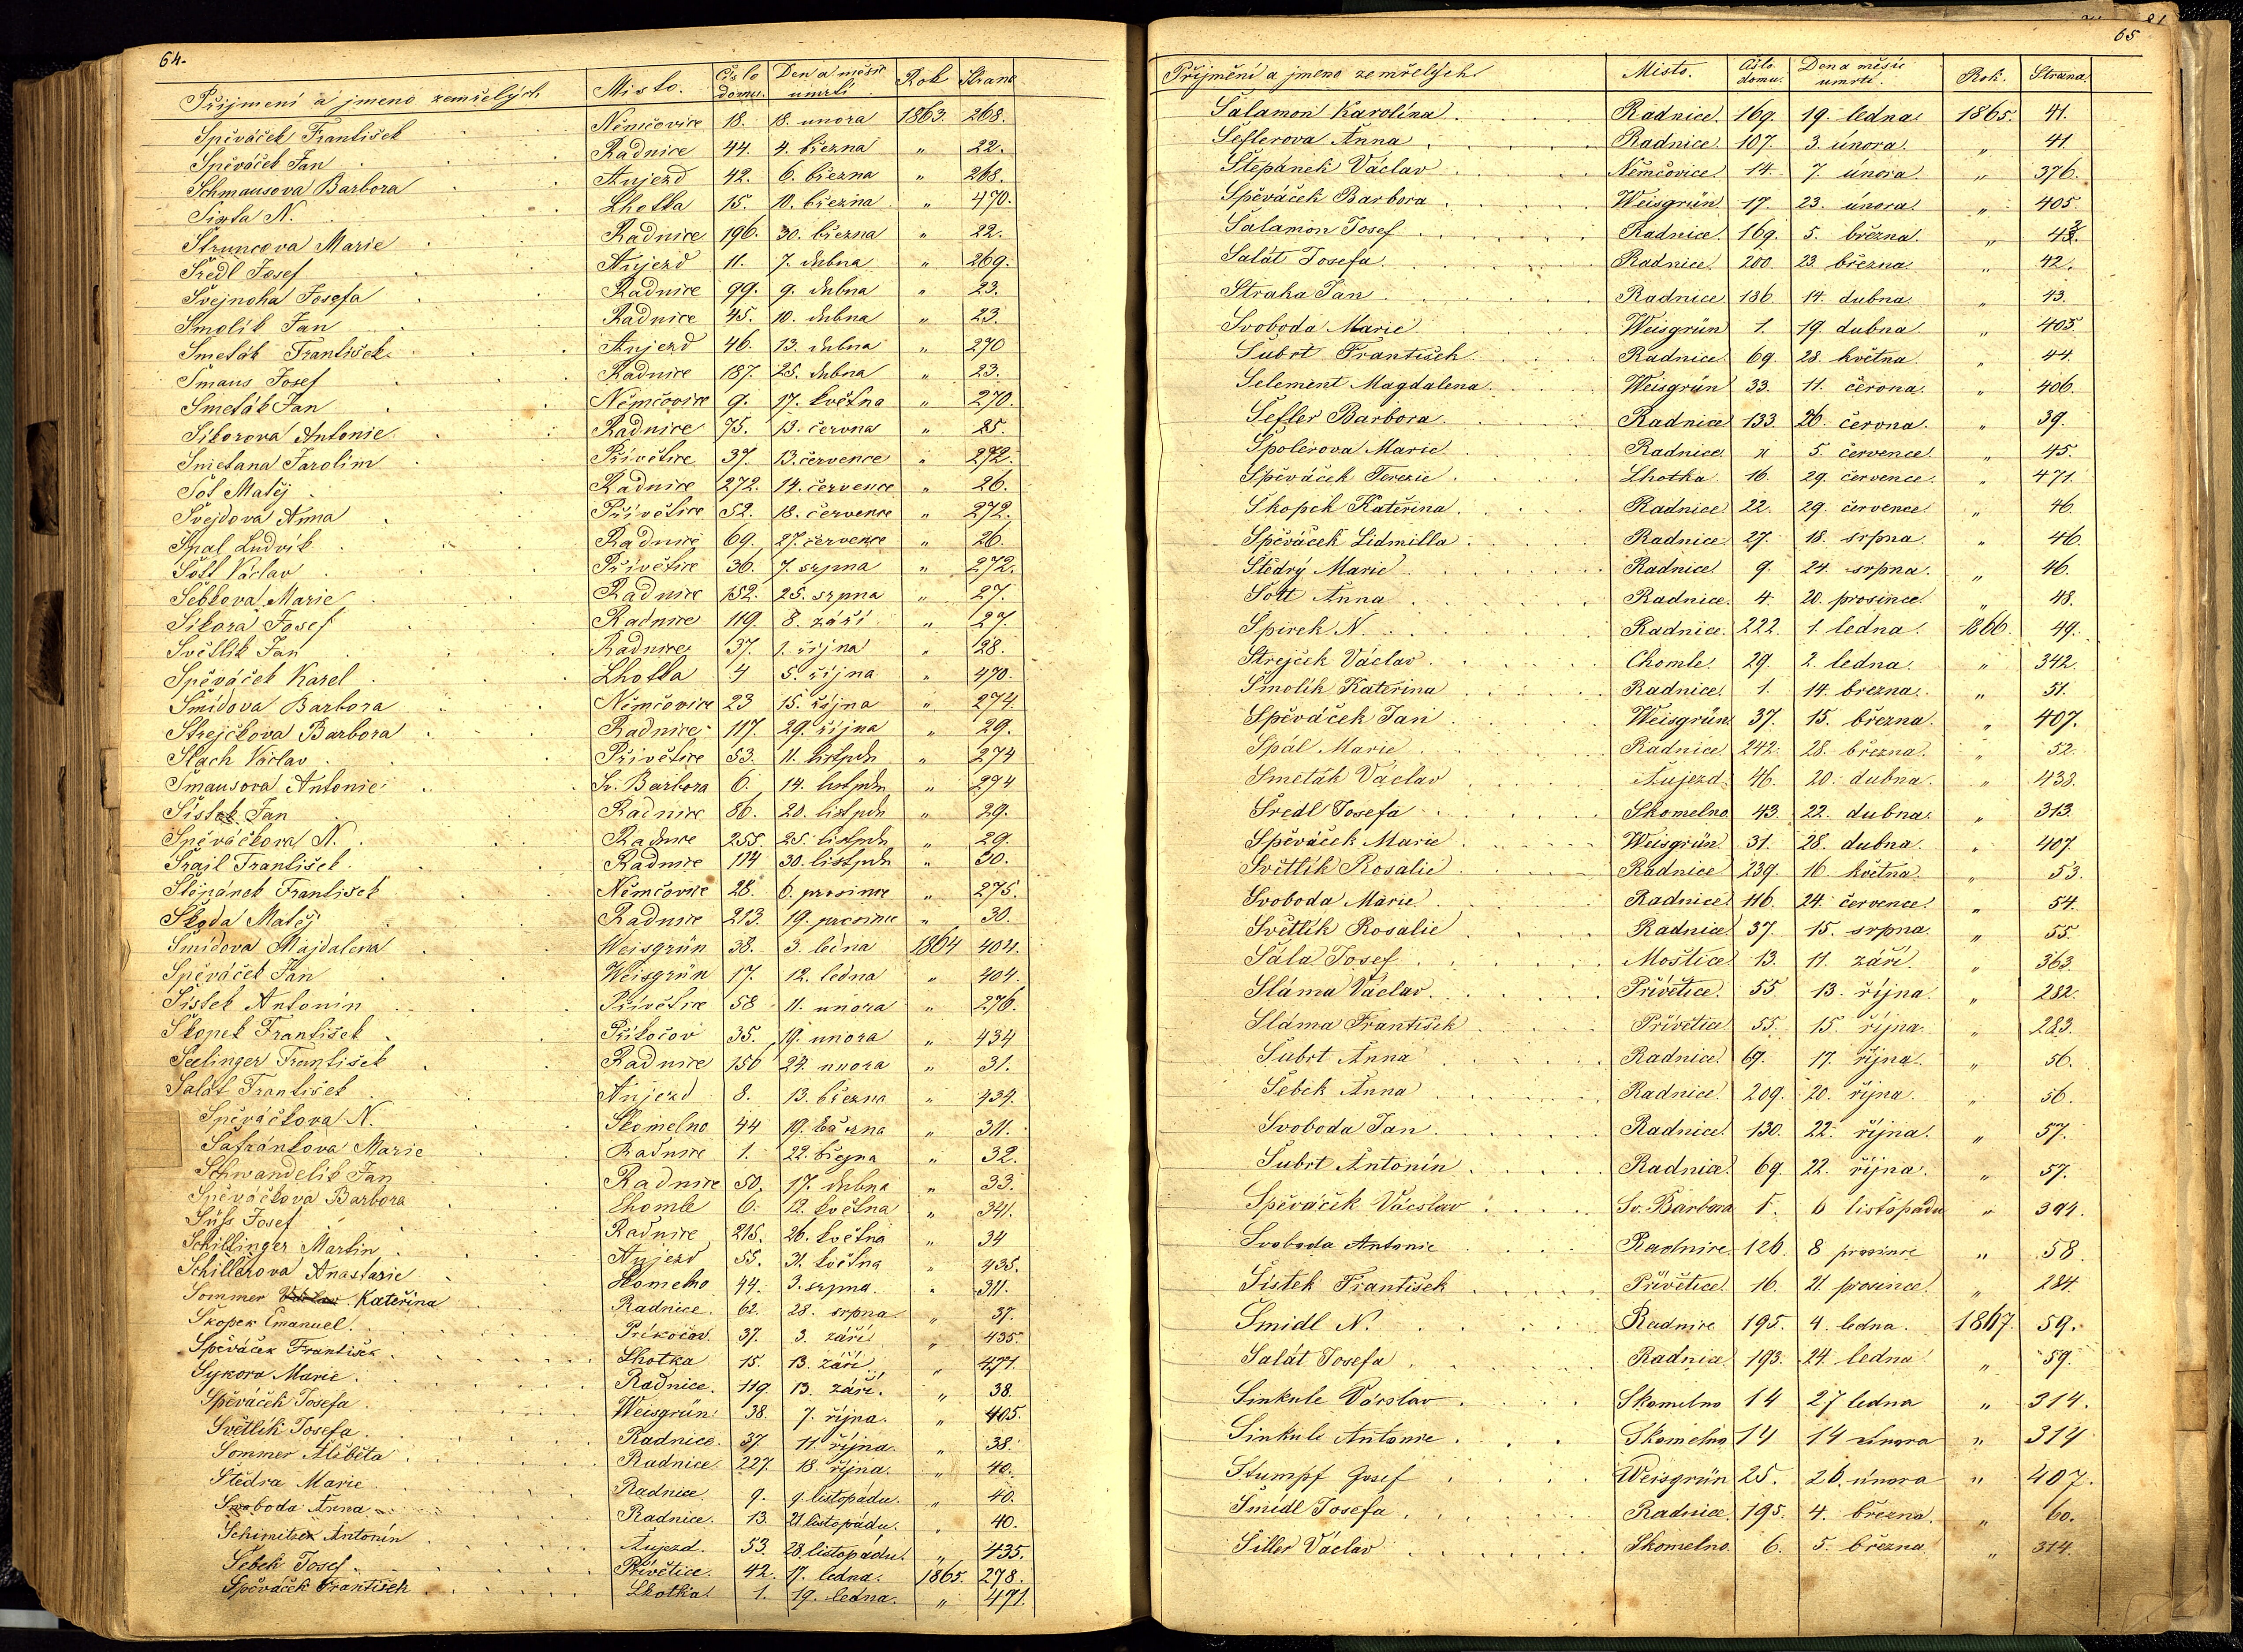 64.
Přijmení a jmeno zemřelých Misto. Čislo domu. Den a měsic umrtí Rok Strana
Spěváček František Němčovice 18. 18. unora 1863. 268.
Spěváček Jan Radnice 44. 4. března " 22.
Schmausova Barbora Aujezd 42. 6. března " 268.
Sixta N. Lhotka 15. 10. března " 470.
Štruncova Marie Radnice 196. 30. března " 22.
Šredl Josef Aujezd 11. 7. dubna " 269.
Švejnoha Josefa Radnice 99. 9. dubna " 23.
Smolik Jan Radnice 45. 10. dubna " 23.
Smeták František Aujezd 46. 13. dubna " 270
Šmaus Josef Radnice 187. 25. dubna " 23.
Smeták Jan Němčovice 9. 17. května " 270.
Sikorova Antonie Radnice 75. 13. června " 25.
Smetana Jarolim Přívětice 37. 13. července " 272.
Šot Matěj Radnice 272. 14. července " 26.
Švejdova Anna Přívětice 52. 18. července " 272.
Spal Ludvík Radnice 69. 27. července " 26.
Šott Václav Přívětice 36. 7. srpna " 272.
Šebkova Marie Radnice 152. 25. srpna " 27.
Sikora Josef Radnice 119. 8. září " 27.
Světlik Jan Radnice 37. 1. října " 28.
Spěváček Karel Lhotka 4 5. října " 470.
Šmidova Barbora Němčovice 23 15. října " 274.
Strejčkova Barbora Radnice 117. 29. října " 29.
Šlach Václav Přívětice 53. 11. listpdu " 274
Šmausova Antonie Sv. Barbora 6. 14. listpdu " 274
Šistek Jan Radnice 86. 20. listpdu " 29.
Spěváčkova N. Radnice 255. 25. listpdu " 29.
Šrajl František Radnice 114 30. listpdu " 30.
Štěpánek František Němčovice 28. 6. prosince " 275.
Škoda Matěj Radnice 213. 19. prosince " 30.
Šmidova Majdalena Weisgrün 38. 3. ledna 1864 404.
Spěváček Jan Weisgrün 17. 12. ledna " 404.
Šistek Antonin Přívětice 58 11. unora " 276.
Škopek František Přikočov 35. 19. unora " 434
Seelinger František Radnice 156 24. unora " 31.
Salát František Aujezd 8. 13. března " 434.
Spěváčkova N. Skomelno 44 19. března " 311.
Šafránkova Marie Radnice 1. 22. března " 32.
Schwandelik Jan Radnice 50. 17. dubna " 33.
Spěváčkova Barbora Chomle 6. 12. května " 341.
Süfs Josef Radnice 215. 26. května " 34
Schillinger Martin Aujezd 55. 31. května " 435.
Schillerova Anastasie Skomelno 44. 3. srpna. " 311.
Sommer Kateřina Radnice. 62. 28. srpna. " 37.
Skopek Emanuel. Príkočov. 37. 3. září " 435.
Spěváček František Lhotka 15. 13. září " 471.
Sykora Marie. Radnice. 119. 13. září. " 38.
Spěváček Josefa Weisgrün. 38. 7. října. " 405.
Světlík Josefa. Radnice. 37. 11. října. " 38.
Sommer Alžběta Radnice. 227. 18. října. " 40.
Štědra Marie Radnice. 9. 9. listopadu. " 40.
Svoboda Anna Radnice. 13. 21. listopadu. " 40.
Schimitzek Antonín Aujezd. 53. 28. listopadu. " 435.
Šebek Josef. Přívětice. 42. 17. ledna. 1865. 278.
Spěváček František Lhotka. 1. 19. ledna. " 471.
65
Přijmění a jmeno zemřelých. Misto. Čislo domu. Den a měsic umrtí. Rok. Strana.
Šalamon Karolína Radnice. 169. 19. ledna. 1865. 41.
Šeflerova Anna Radnice. 107. 3. února. " 41
Štěpánek Václav Němčovice. 14. 7. února. " 376.
Spěváček Barbora Weisgrün. 17. 23. února. " 405.
Šalamon Josef Radnice. 169. 5. března. "
Salát Josefa. Radnice. 200. 23. března. " 42.
Straka Jan Radnice. 186. 14. dubna. " 43.
Svoboda Marie Weisgrün 1. 19. dubna. " 405.
Šubrt František Radnice. 69. 28. května. " 44.
Selement Magdalena. Weisgrün 33. 11. června. " 406.
Šefler Barbora Radnice 133. 26. června. " 39.
Špolerova Marie Radnice. " 5. července. " 45.
Spěváček Terezie Lhotka. 16. 29. července. " 471.
Skopek Kateřina Radnice. 22. 29. července. " 46.
Spěváček Lidmilla Radnice. 27. 18. srpna. " 46.
Štědrý Marie Radnice. 9. 24. srpna. " 46.
Šott Anna Radnice. 4. 20. prosince. " 48.
Spirek N. Radnice. 222. 1. ledna. 1866. 49.
Strejček Václav Chomle. 29. 2. ledna. " 342.
Smolík Kateřina Radnice. 1. 14. března. " 51.
Spěváček Jan Weisgrün. 37. 15. března. " 407.
Spál Marie Radnice. 242. 28. března. " 52.
Smeták Václav Aujezd. 46. 20. dubna. " 438.
Šredl Josefa Skomelno. 43. 22. dubna. " 313.
Spěváček Marie Weisgrün 31. 28. dubna. " 407.
Světlík Rosalie Radnice 239. 16. května. " 53.
Svoboda Marie Radnice 116. 24. července. " 54.
Světlík Rosalie Radnice 37. 15. srpna. " 55.
Šála Josef Moštice 13. 11. září. " 363.
Sláma Václav. Přívětice. 55. 13. října. " 282.
Sláma František Přívětice. 55. 15. října. " 283.
Šubrt Anna Radnice. 69. 17. října. " 56.
Šebek Anna Radnice. 209. 20. října. " 56.
Svoboda Jan. Radnice. 130. 22. října. " 57.
Šubrt Antonín Radnice. 69. 22. října. " 57.
Spěváček Vácslav Sv. Barbora 1. 6 listopadu " 394.
Svoboda Antonie Radnice 126. 8 prosince " 58
Šístek František Přívětice. 16. 21. prosince. " 284.
Šmidl N. Radnice 195. 4. ledna. 1867. 59.
Salát Josefa Radnice. 193. 24. ledna. " 59.
Sinkule Vácslav Skomelno 14 27 ledna " 314.
Sinkule Antonie Skomelno 14 14 února " 314
Stumpf Josef Weisgrün 25. 26. února " 407.
Šmidl Josefa Radnice. 195. 4. března. " 60.
Šiller Václav Skomelno. 6. 5. března. " 314.